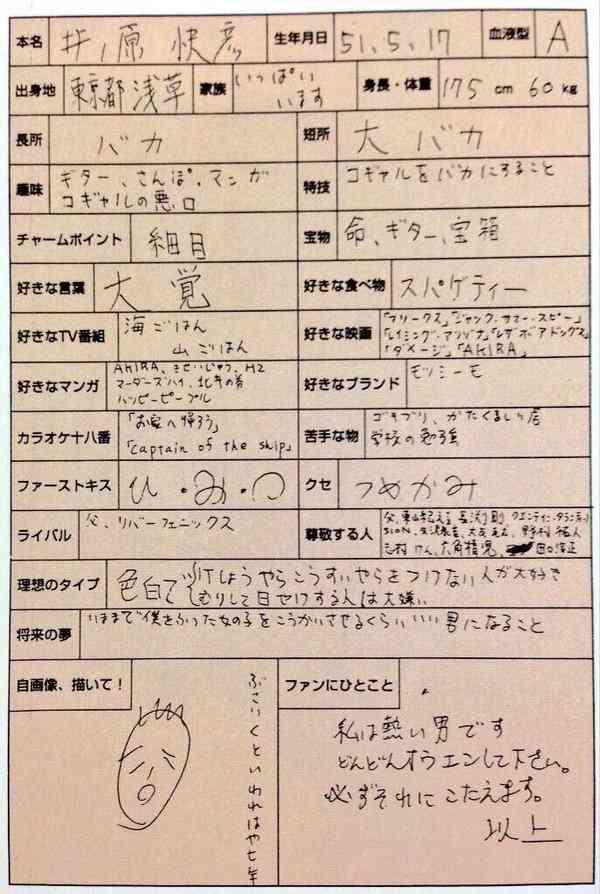 本名 井ノ原 快彦 生年月日 51.5.17 血液型 A
出身地 東京都浅草 家族 いっぱい います 身長・体重 175cm 60kg
長所 バカ 短所 大バカ
趣味 ギター、さんぽ、マンガ
コギャルの悪口
特技 コギャルをバカにすること
チャームポイント 細目 宝物 命、ギター、宝箱
好きな言葉 大覚 好きな食べ物 スパゲティー
好きなTV番組 海ごはん
山ごはん
好きな映画 「フリークス」「ジャック・サマー・スビー」
「レイミング・アリゾナ」「レザボアドッグス」
「ダメージ」「AKIRA」
好きなマンガ AKIRA、きせいじゅう、H2
マーダーズハイ、北斗の拳
ハッピーピープル
好きなブランド モツシーモ
カラオケ十八番 「お家へ帰ろう」
「captain of the ship」
苦手な物 ゴキブリ、かたくるしい店
学校の勉強
ファーストキス ひ・み・つ クセ つめかみ
ライバル 父、リバーフェニックス
尊敬する人 父、東山紀之、長渕剛、クエンティン・タランティーノ
SION、矢沢永吉
志村けん、六角精児、田口浩正
理想のタイプ 色白で けしょうやらこうすいやらをつけない人が大好き
むりして日やけする人は大嫌い
将来の夢 いままで僕をふった女の子をこうかいさせるくらいいい男になること
自画像、描いて!
ぶさいくといわれはや七年
ファンにひとこと
私は熱い男です
どんどんオウエンして下さい。
必ずそれにこたえます。
以上